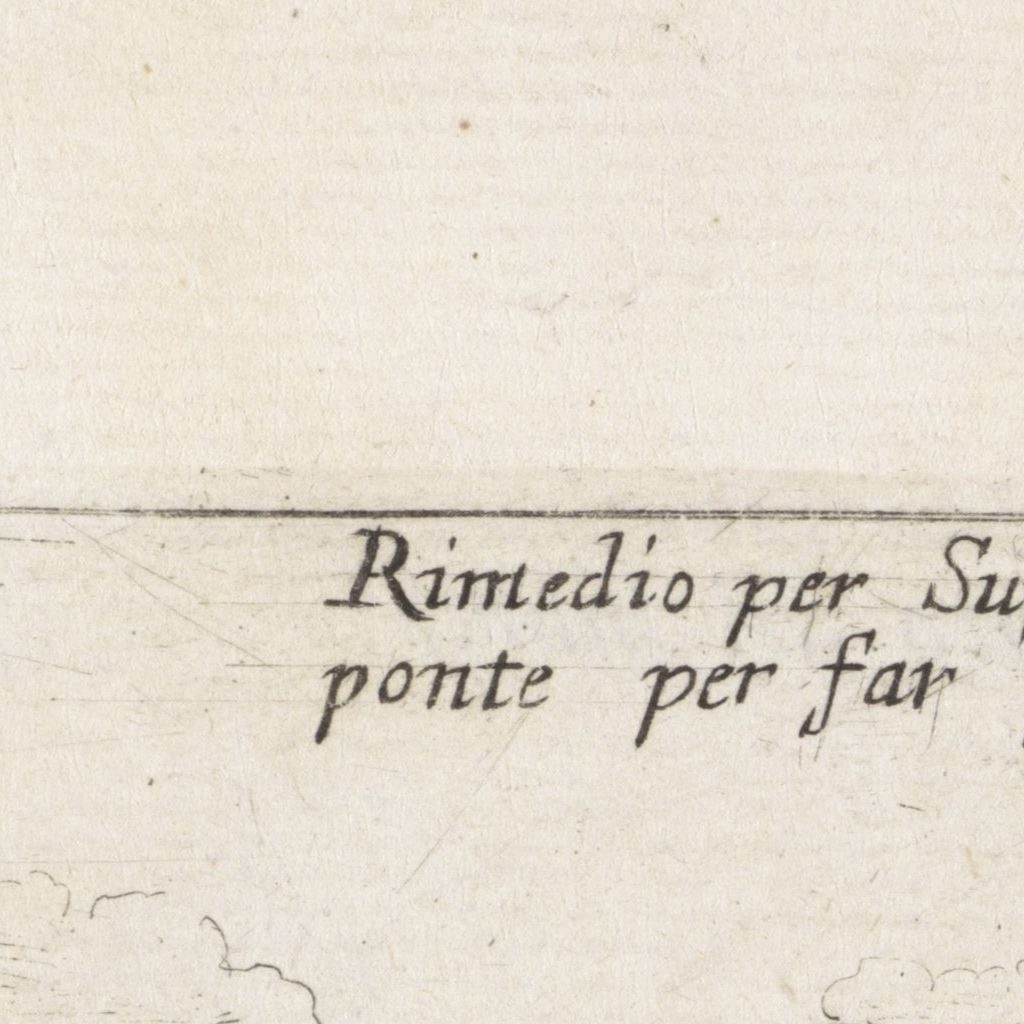 Rimedio per Su
ponte per far